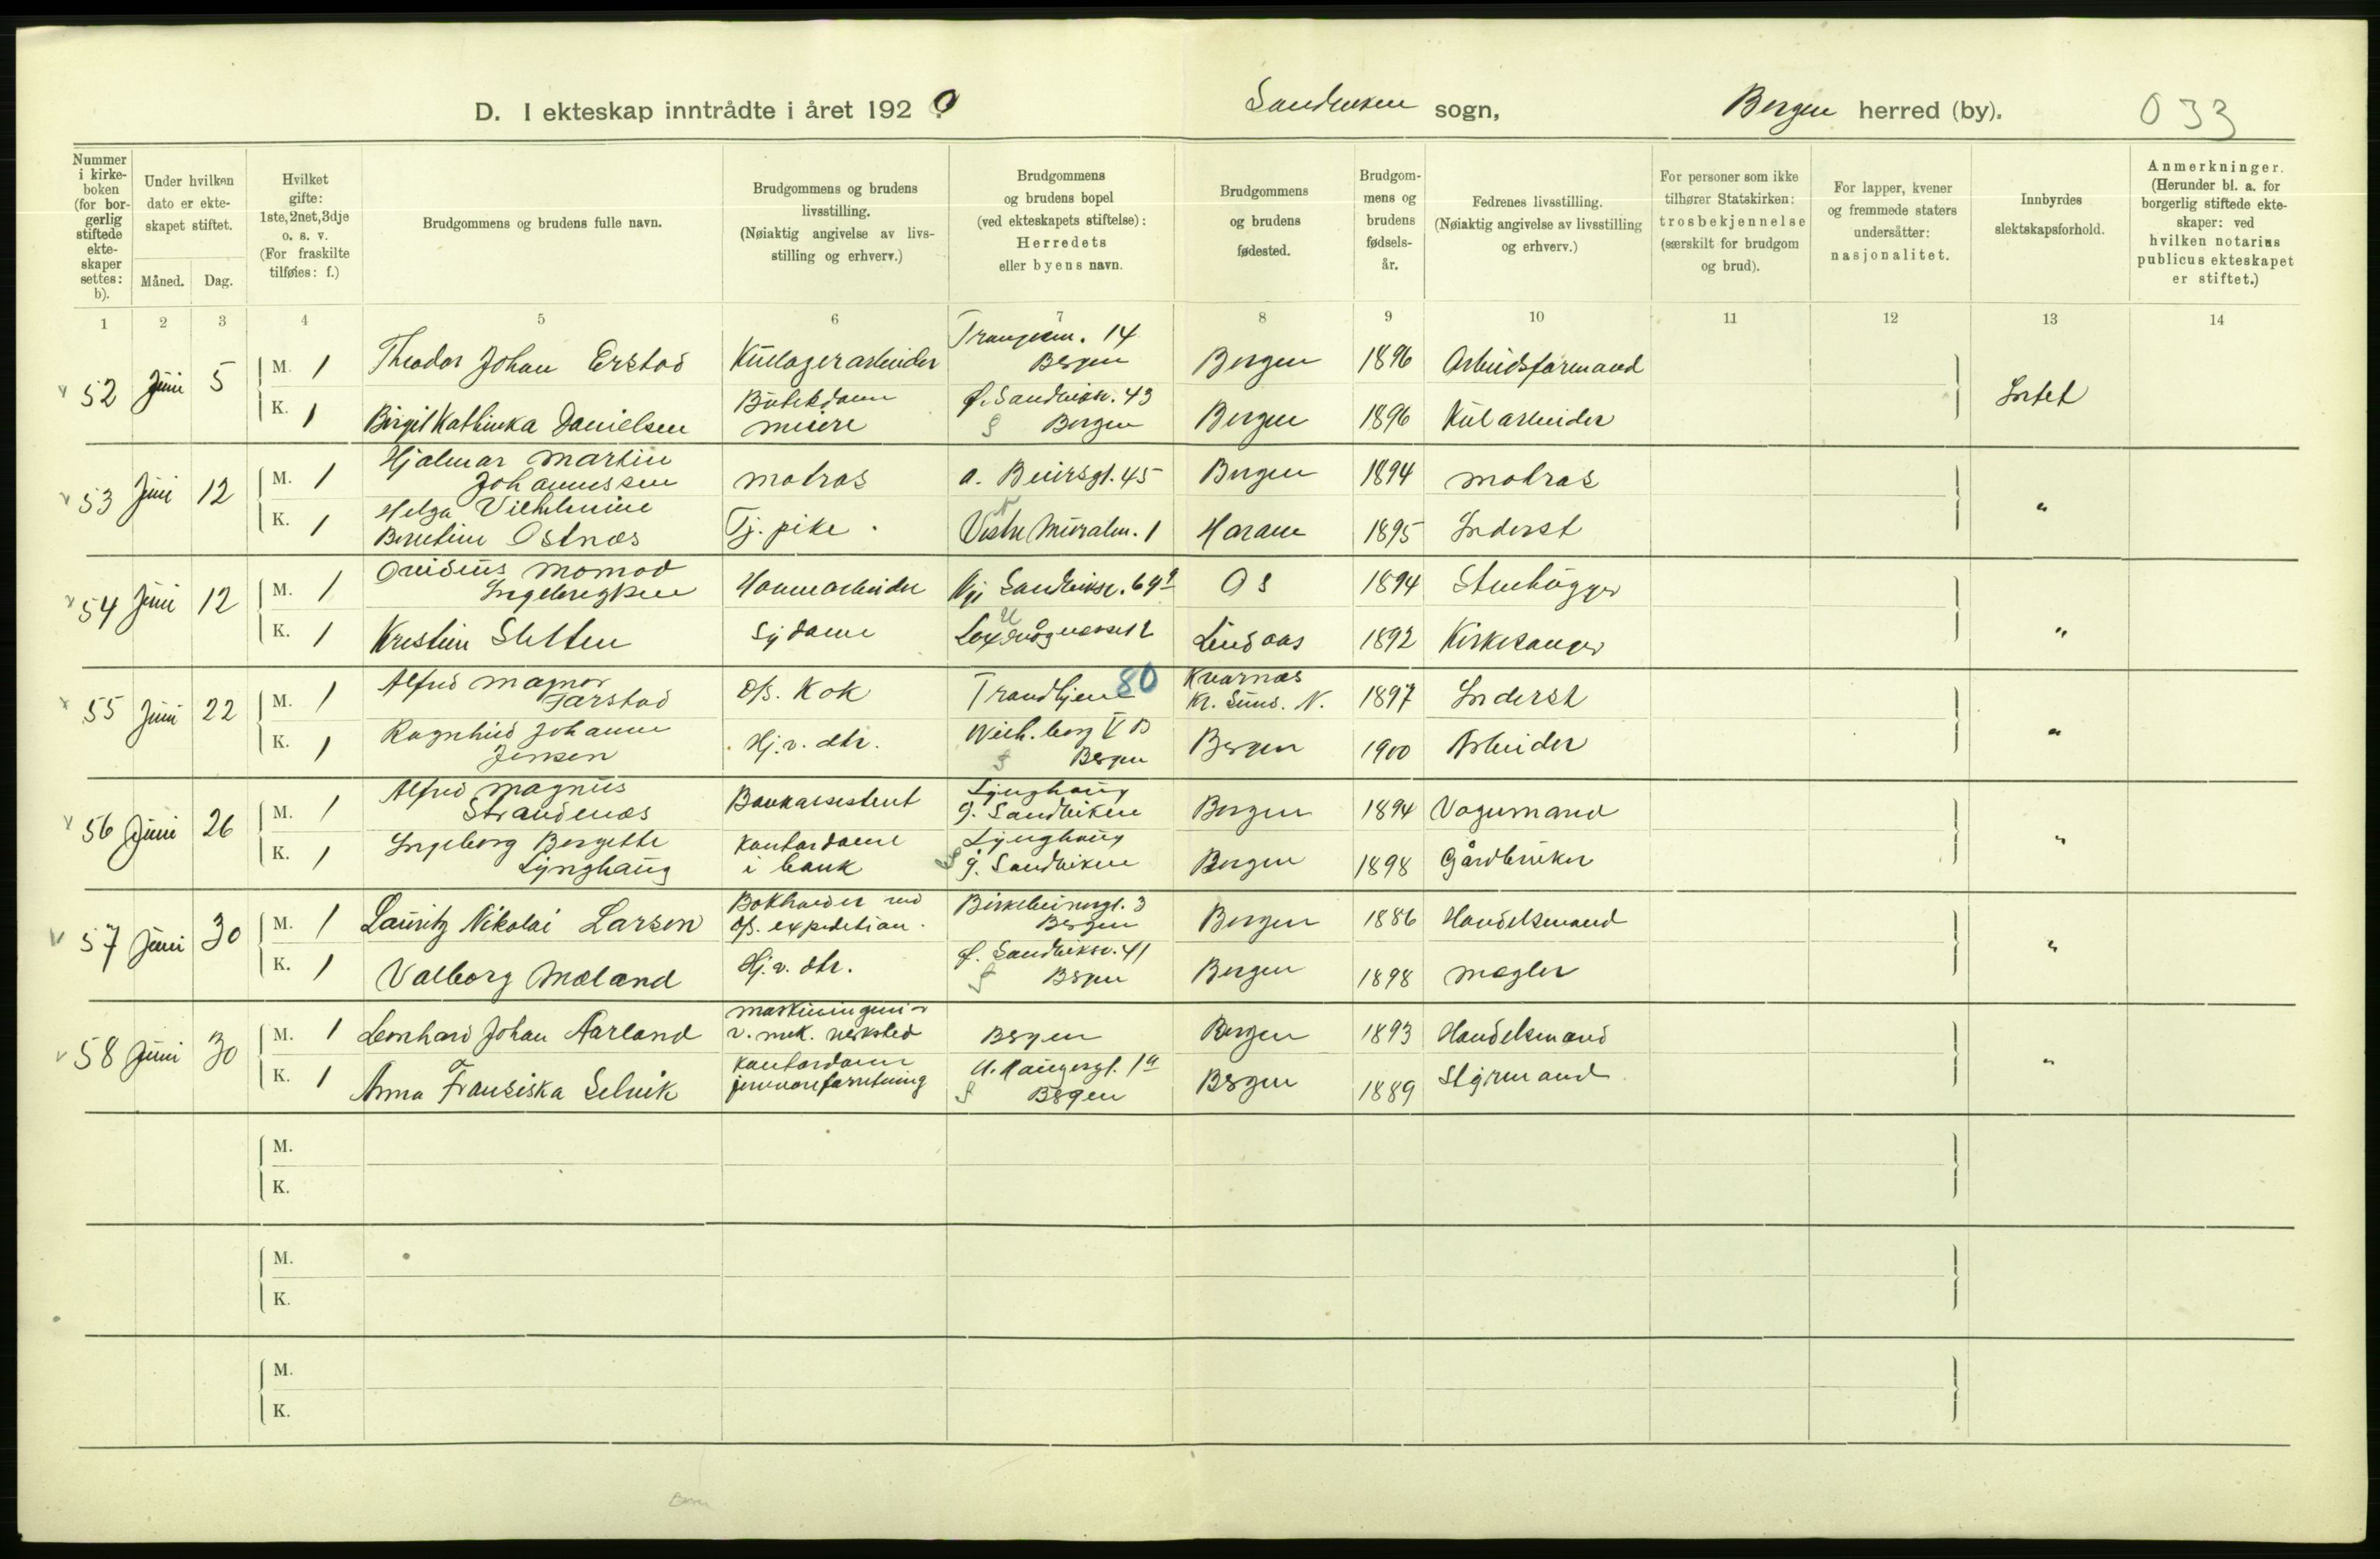 D. I ekteskap inntrådte i året 1920
Sandviken sogn,
Bergen herred (by).
033
Nummer i kirke-boken (for bor-gerlig stiftede ekte-skaper settes: b).
Under hvilken dato er ekte-skapet stiftet.
Måned. Dag.
Hvilket gifte: 1ste, 2net, 3dje o. s. v. (For fraskilte tilføies: f.)
Brudgommens og brudens fulle navn.
Brudgommens og brudens livsstilling. (Nøiaktig angivelse av livs-stilling og erhverv.)
Brudgommens og brudens bopel (ved ekteskapets stiftelse): Herredets eller byens navn.
Brudgommens og brudens fødested.
Brudgom-mens og brudens fødsels-år.
Fedrenes livsstilling. (Nøiaktig angivelse av livsstilling og erhverv.)
For personer som ikke tilhører Statskirken: trosbekjennelse (særskilt for brudgom og brud).
For lapper, kvener og fremmede staters undersåtter: nasjonalitet.
Innbyrdes slektskapsforhold.
Anmerkninger. (Herunder bl. a. for borgerlig stiftede ekte-skaper: ved hvilken notarius publicus ekteskapet er stiftet.)
1 2 3 4 5 6 7 8 9 10 11 12 13 14
52 Juni 5 M. 1 Theodor Johan Erstad Kullagerarbeider 14 Bergen Bergen 1896 Arbeidsformand
K. 1 Birgit Kathinka Danielsen Butikdame Ø. Sandviksv. 43 Bergen Bergen 1896 Kularbeider Intet
53 Juni 12 M. 1 Hjalmar Martin Johannessen Matros 45 Bergen 1894 Matros
K. 1 Helga Vilhelmine Berntine Ostnæs Tj. pike Vestre Muralm. 1 Haram 1895 Inderst "
54 Juni 12 M. 1 Ovidius Momod Ingebrigtsen Havnearbeider Nye Sandviksv. Os 1894 Stenhugger
K. 1 Kristine Sletten Sydame Lindaas 1892 Kirkesanger "
55 Juni 22 M. 1 Alfred Magnor Farstad D/S. Kok Trondhjem 80 Kvarnæs Kr. Sund. N. 1897 Inderst
K. 1 Ragnhild Johanne Jensen Hj. v. dtr. Bergen Bergen 1900 Arbeider "
56 Juni 26 M. 1 Alfred Magnus Strandenæs Bankassistent Lynghaug Sandviken Bergen 1894 Vognmand
K. 1 Ingeborg Bergette Lynghaug Kontordame i bank Lynghaug Sandviken Bergen 1898 Gårdbruker "
57 Juni 30 M. 1 Lauritz Nikolai Larsen Bokholder ved D/S. expedition. Birkebeinergt. 3 Bergen Bergen 1886 Handelsmand
K. 1 Valborg Mæland Hj. v. dtr. Ø. Sandviksv. 41 Bergen Bergen 1898 Mægler "
58 Juni 30 M. 1 Leonhard Johan Aarland Maskiningeniør v. mek. verksted Bergen Bergen 1893 Handelsmand
K. 1 Anna Franziska Selvik Kontordame jernvareforretning Bergen Bergen 1889 Styrmand "
M.
K.
M.
K.
M.
K.